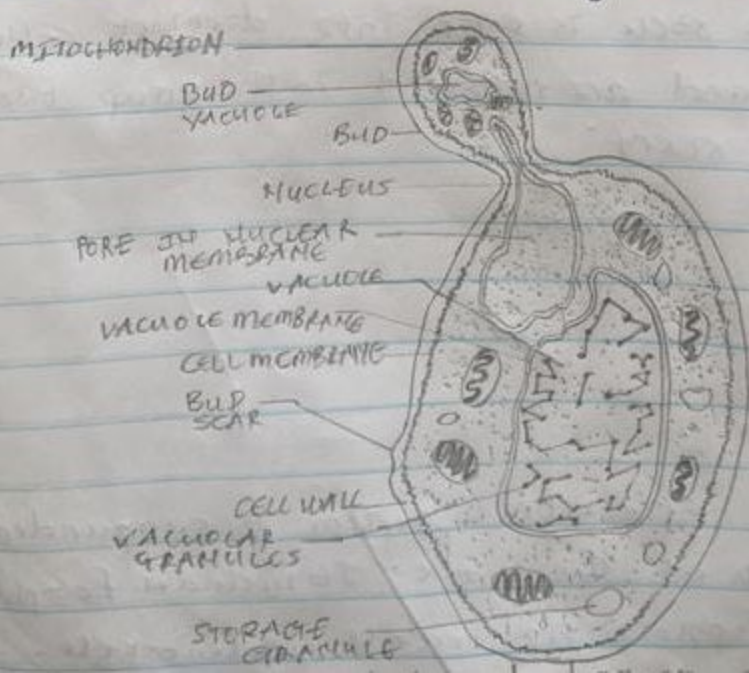 MITOCHONDRION
BUD
VACUOLE
BUD
NUCLEUS
PORE IN NUCLEAR
MEMBRANE
VACUOLE
VACUOLE MEMBRANE
CELL MEMBRANE
BUD
SCAR
CELL WALL
VACUOLAR
GRANULES
STORAGE
GRANULE